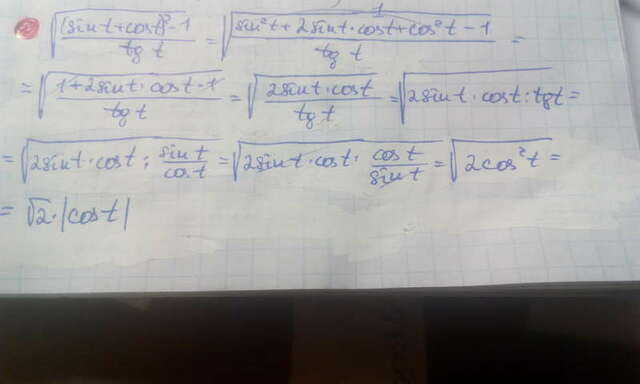 √((sin t + cos t)² - 1 / tg t) = √(sin² t + 2 sin t · cos t + cos² t - 1 / tg t) =
= √(1 + 2 sin t · cos t - 1 / tg t) = √(2 sin t · cos t / tg t) = √(2 sin t · cos t : tg t) =
= √(2 sin t · cos t : sin t / cos t) = √(2 sin t · cos t · cos t / sin t) = √(2 cos² t) =
= √2 · |cos t|